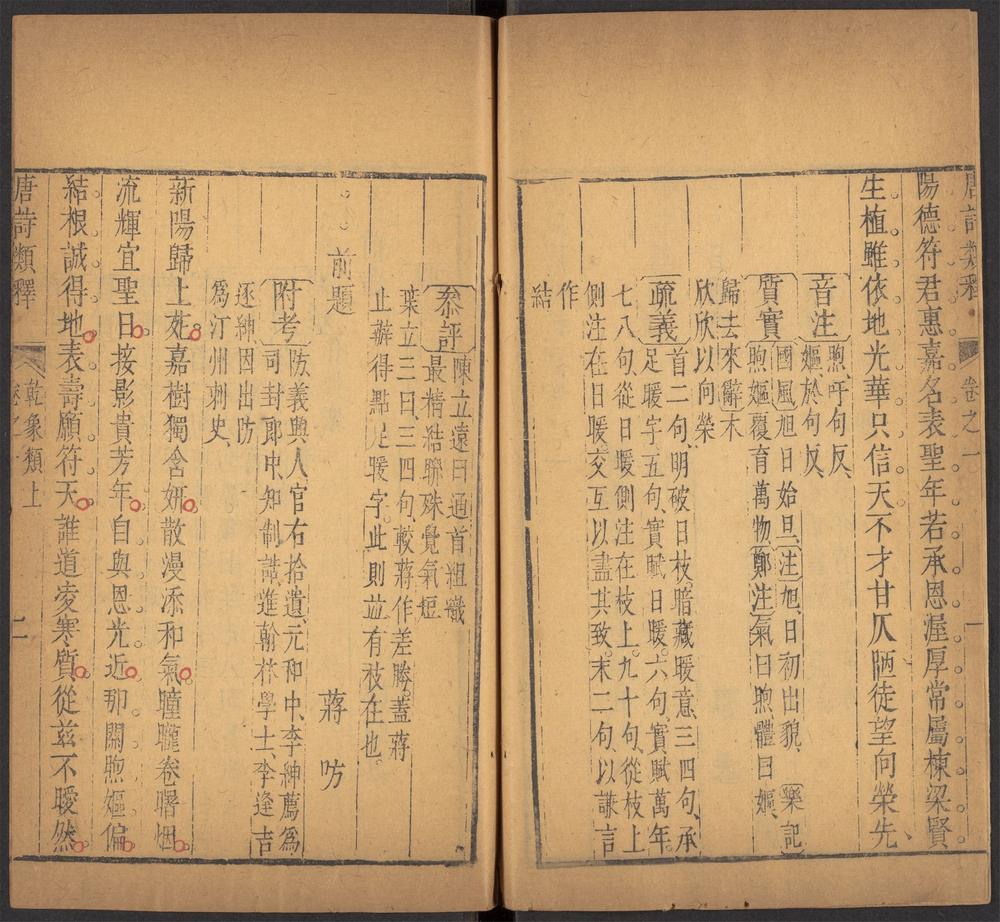 唐詩類釋 卷之一 一
陽德符君惠嘉名表聖年若承恩渥厚常屬棟梁賢
生植雖依地光華只信天不才甘仄陋徒望向榮先
音注 煦吁句反
嫗於句反
質實 國風旭日始旦注旭日初出貌 樂記
煦嫗覆育萬物鄭注氣曰煦體曰嫗
歸去來辭木
欣欣以向榮
疏義 首二句明破日枝暗藏暖意三四句承
足暖字五句實賦日暖六句實賦萬年
七八句從日暖側注在枝上九十句從枝上
側注在日暖交互以盡其致末二句以謙言
作
結
叅評 陳立遠曰通首組織
最精結聯殊覺氣短
葉立三曰三四句較蔣作差勝蓋蔣
止辦得點足暖字此則並有枝在也
前題 蔣防
附考 防義興人官右拾遺元和中李紳薦為
司封郎中知制誥進翰林學士李逢吉
逐紳因出防
為汀州刺史
新陽歸上苑嘉樹獨含妍散漫添和氣曈曨卷曙烟
流輝宜聖日接影貴芳年自與恩光近那關煦嫗偏
結根誠得地表壽願符天誰道凌寒質從玆不曖然
唐詩類釋 乾象類上 卷之一 二